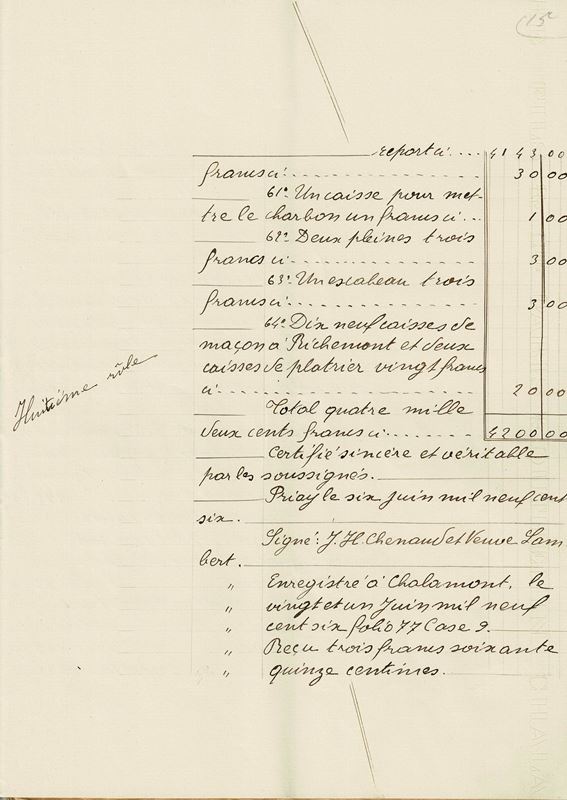 15e
report ci .... 4143 00
francs ci. 30 00
61° Un caisse pour met-
tre le charbon un francs ci... 1 00
62° Deux pleines trois
francs ci 3 00
63° Un escabeau trois
francs ci. 3 00
64° Dix neuf caisses de
maçon à Richemont et deux
caisses de platrier vingt francs
ci. 20 00
Total quatre mille
deux cents francs ci. 4200 00
Certifié sincère et véritable
par les soussignés.
Priay le six juin mil neuf cent
six.
Signé: J. H. Chenaud et Veuve Lam
bert.
" Enregistré à Chalamont, le
" vingt et un Juin mil neuf
" cent six folio 77 Case 9.
" Reçu trois francs soixante
" quinze centimes.
Huitième rôle